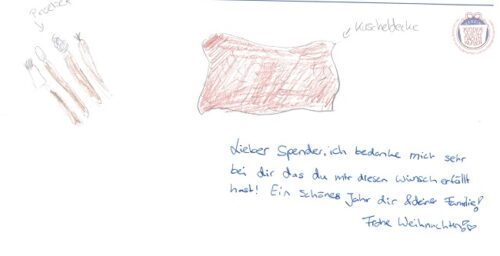 Kuscheldecke
Lieber Spender, ich bedanke mich sehr
bei dir das du mir diesen Wunsch erfüllt
hast! Ein schönes Jahr dir & deine Familie!
Frohe Weihnachten!